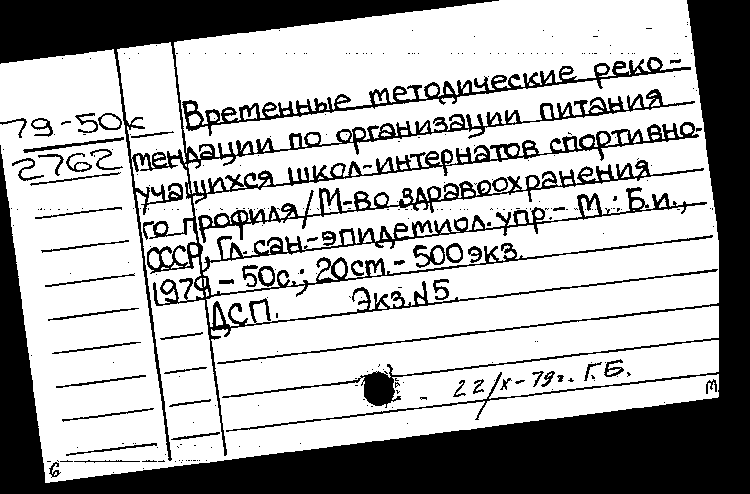 79-50к
2762
Временные методические реко-
мендации по организации питания
учащихся школ-интернатов спортивно-
го профиля/М-во здравоохранения
СССР, Гл. сан.-эпидемиол. упр.- М.: Б.и.,
1979.- 50с.; 20см.- 500экз.
ДСП. Экз.N5.
22/X-79г. Г.Б.
М
6